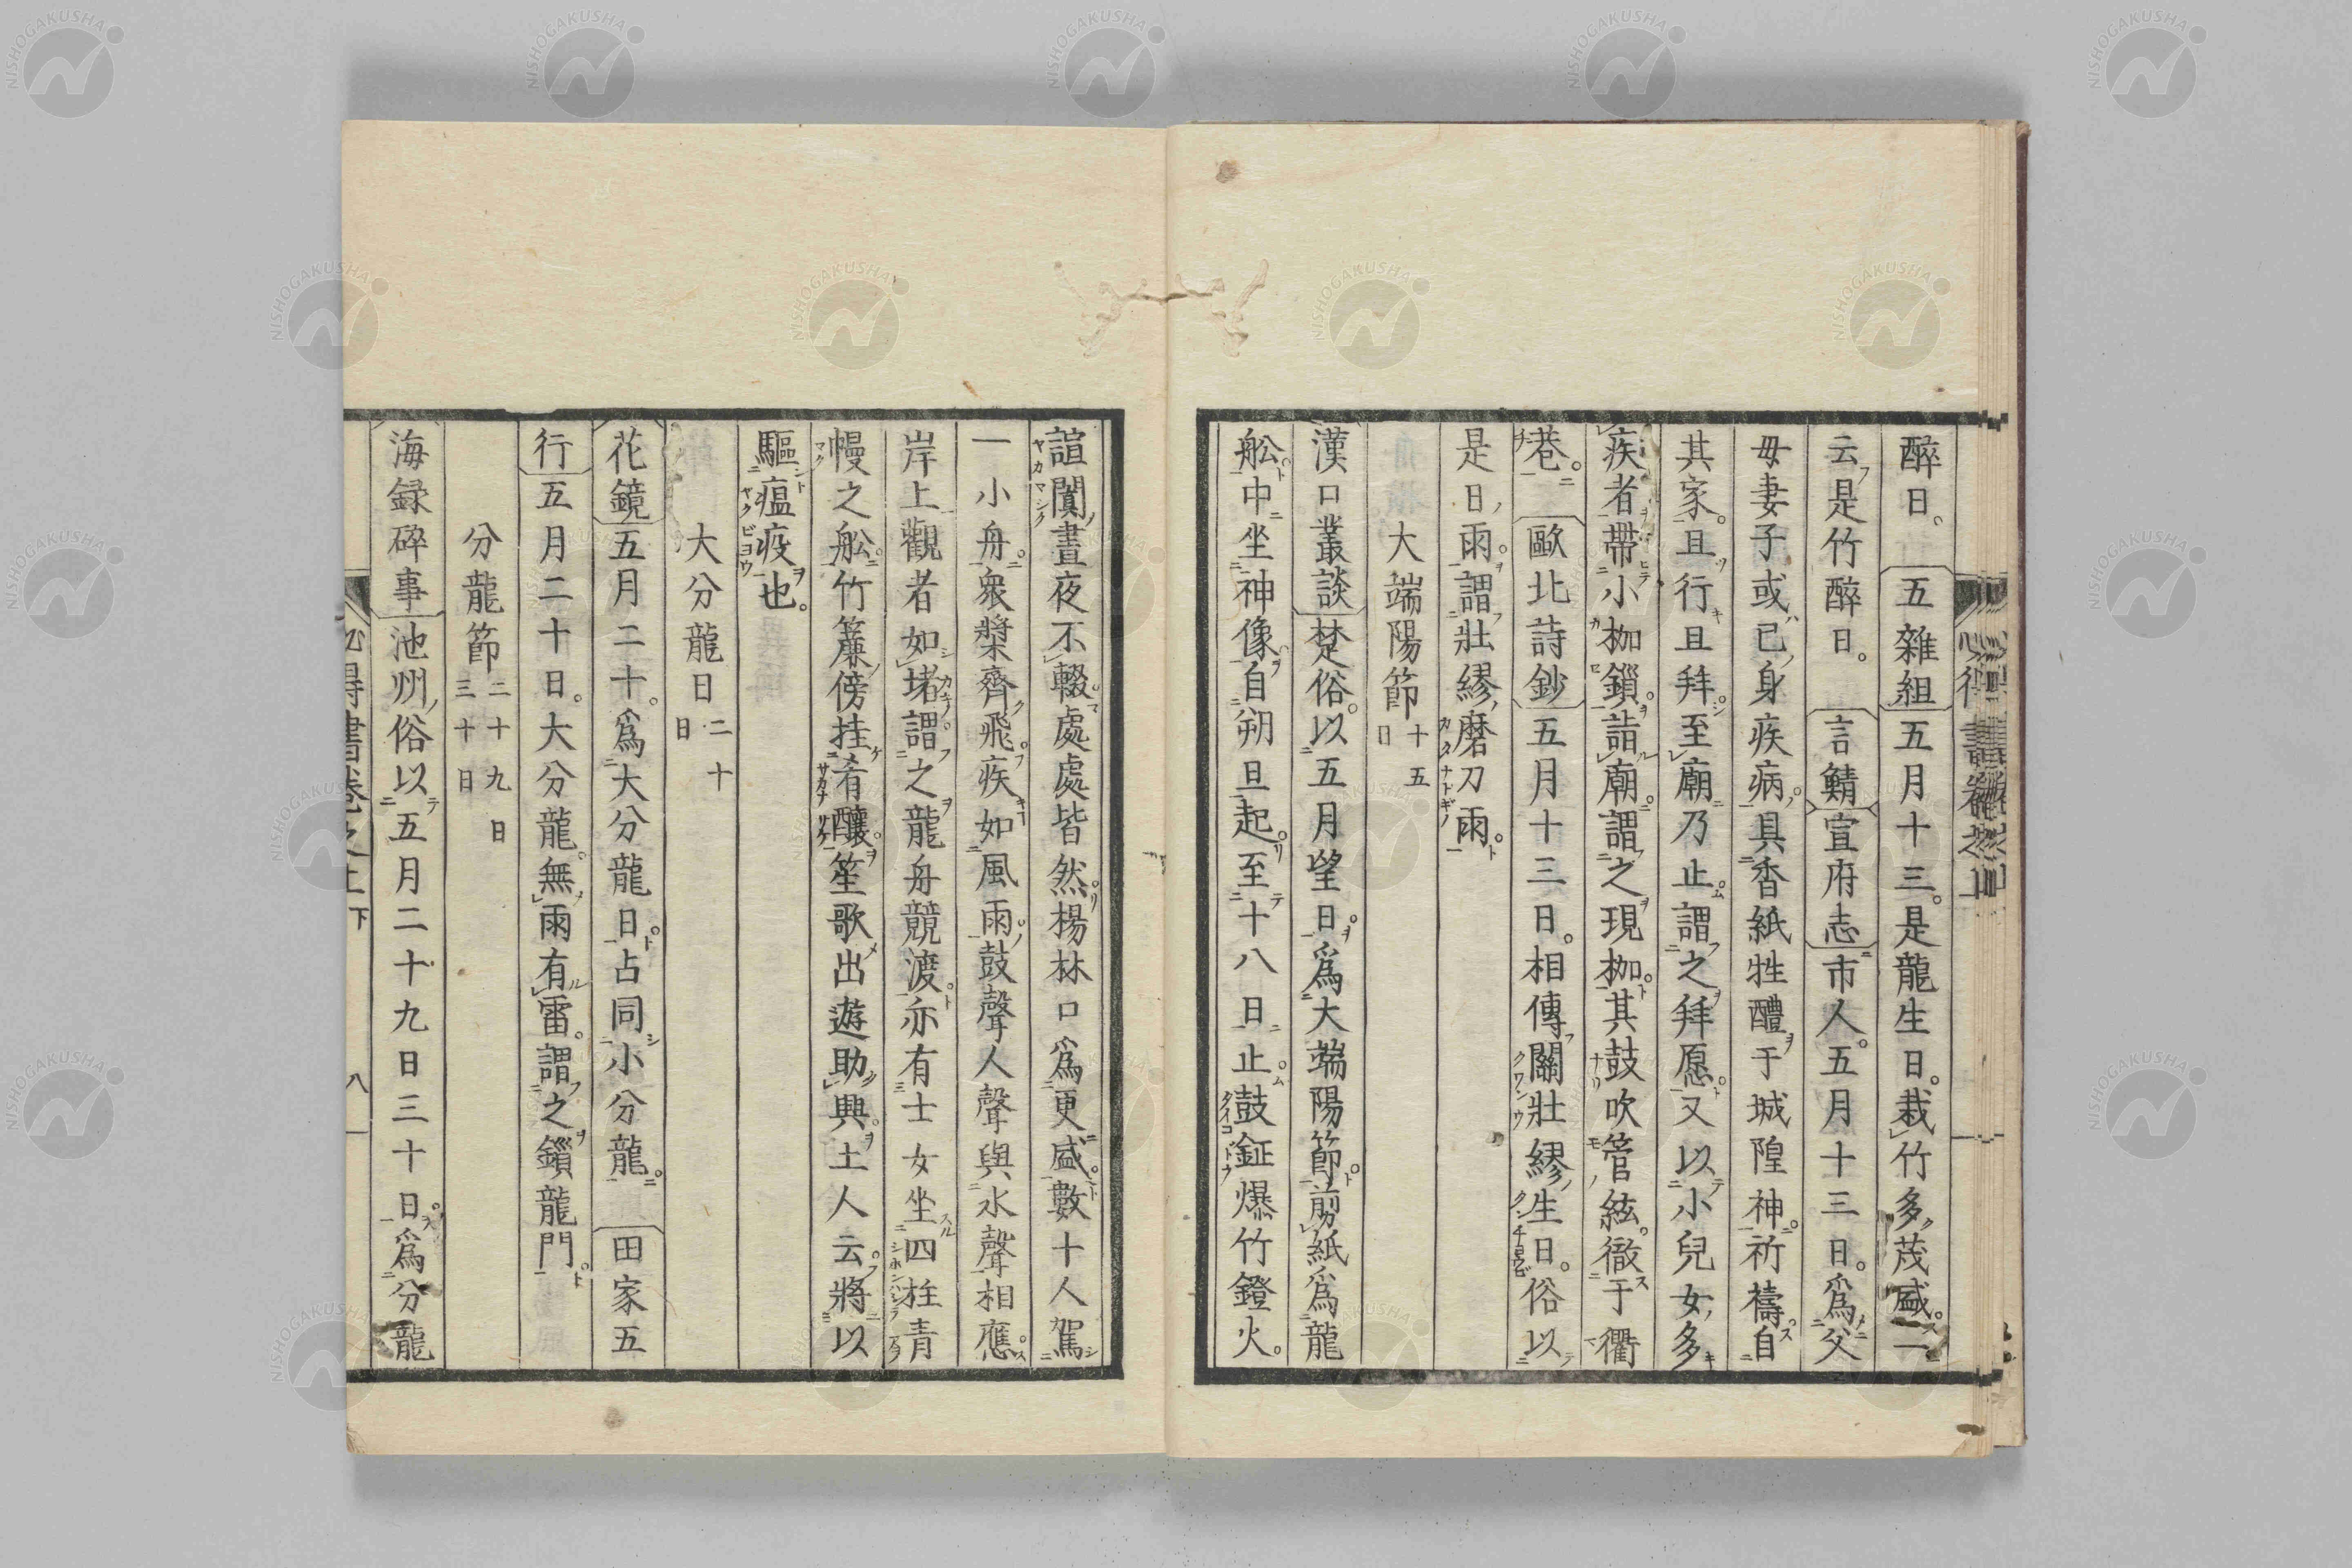 醉日。五雜組五月十三。是龍生日。栽竹多茂盛。一
云是竹醉日。言鯖宣府志市人。五月十三日。爲父
母妻子或已身疾病。具香紙牲醴于城隍神。祈禱。自
其家。且行且拜。至廟乃止。謂之拜愿。又以小兒女多
疾者。帶小枷鎖。詣廟。謂之現枷。其鼓吹管絃。徹于衢
巷。歐北詩鈔五月十三日。相傳關壯繆生日。俗以
是日雨。謂壯繆磨刀雨。
大端陽節十五日
漢口叢談楚俗。以五月望日。爲大端陽節。剪紙爲龍
舩。中坐神像。自朔旦起。至十八日止。鼓鉦爆竹鐙火。
諠闐晝夜不輟。處處皆然。楊林口爲更盛。數十人駕
一小舟。衆槳齊飛。疾如風雨。鼓聲人聲與水聲相應。
岸上觀者如堵。謂之龍舟競渡。亦有士女坐四柱青
幔之舩。竹簾傍挂肴釀。笙歌出遊助興。土人云。將以
驅瘟疫也。
大分龍日二十日
花鏡五月二十。爲大分龍日。占同小分龍。田家五
行五月二十日。大分龍。無雨有雷。謂之鎖龍門。
分龍節二十九日三十日
海録碎事池州俗以五月二十九日三十日。爲分龍